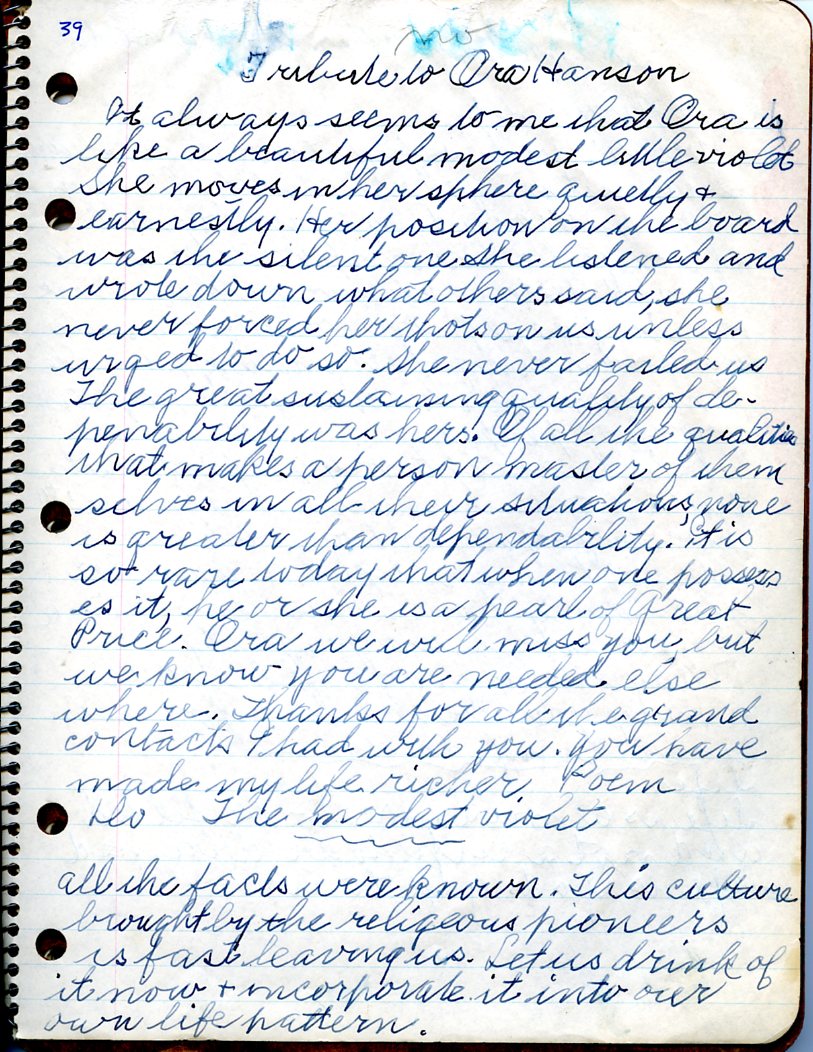 39
no
Tribute to Ora Hanson
It always seems to me that Ora is
like a beautiful modest little violet
She moves in her sphere quietly +
earnestly. Her position on the board
was the silent one She listened and
wrote down what others said, she
never forced her thots on us unless
urged to do so. She never failed us
The great sustaining quality of de-
penability was hers. Of all the qualities
that makes a person master of them
selves in all their situations, none
is greater than dependability. It is
so rare today that when one possess
es it, he or she is a pearl of Great
Price. Ora we will miss you but
we know you are needed else
where. Thanks for all the grand
contacts I had with you. You have
made my life richer Poem
The modest violet
all the facts were known. This culture
brought by the religeous pioneers
is fast leaving us. Let us drink of
it now + incorporate it into our
own life pattern.